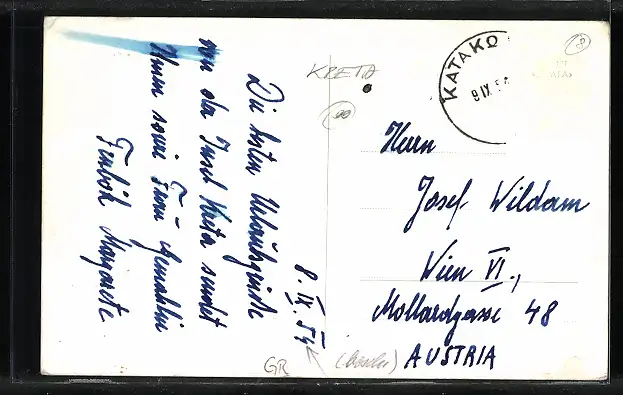 8. IX. 54
Die besten Urlaubsgrüße
von der Insel Kreta sendet
Ihnen sowie Frau Gemahlin
Margarete
KPETA
ΚΑΤΑΚΩ
9 IX 54
Herrn
Josef Wildam
Wien VI.,
Mollardgasse 48
AUSTRIA
GR